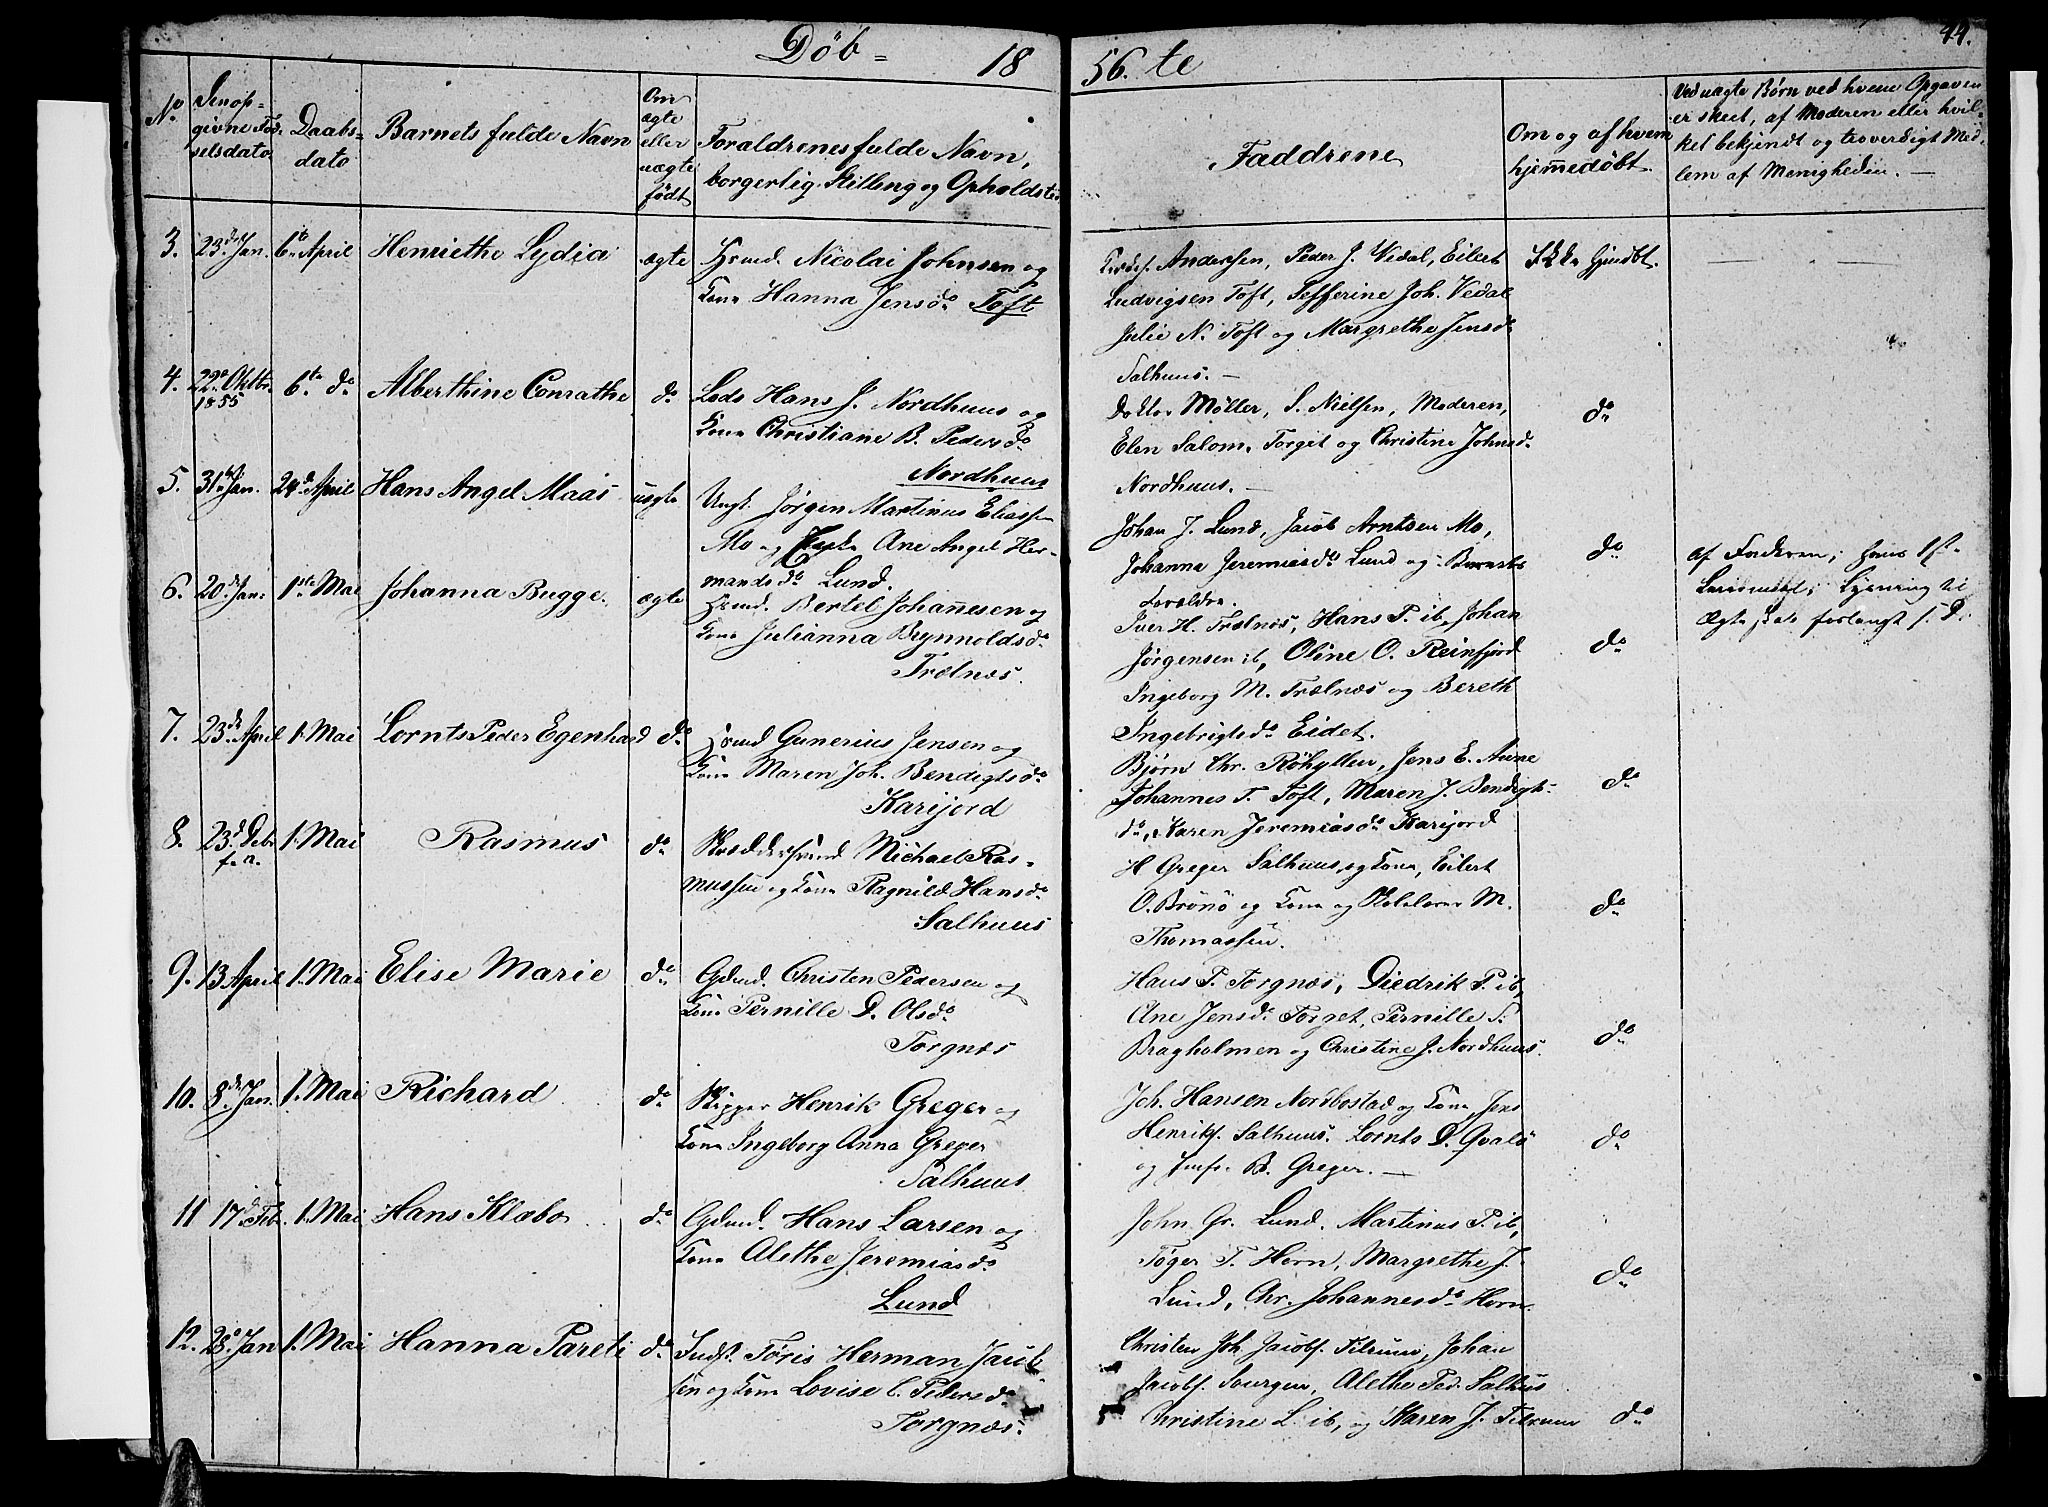 Døb = 18 56. te
44.
No
Den op-
givne Fød-
selsdato
Daabs-
dato
Barnets fulde Navn
Om
ægte
eller
uægte
født
Foraldrenes fulde Navn,
borgerlig Stilling og Opholdsted
Faddrene
Om og af hvem
hjemmedøbt.
Ved uægte Børn ved hvem Opgaven
er skeet, af Moderen eller hvil-
ket bekjendt og troverdigt Med-
lem af Menigheden. —
3. 23de Jan. 6te April Henriethe Lydia ægte Hsmd. Nicolai Johnsen og
Kone Hanna Jensdr Toft
Andersen, Peder J. Vedal, Eilert
Ludvigsen Toft, Sefferine Joh. Vedal
Julie N. Toft og Margrethe Jensd
Salhuus. —
Ikke
4. 22de Oktbr. 6te do Alberthine Conrathe do Lods Hans J. Nordhuus og
1855
Kone Christiane B. Pedersdr
Nordhuus
Doktor Møller, S. Nielsen, Moderen,
Elen Salom. Torget og Christine Johnsdr
Nordhuus. —
do
5. 31te Jan. 24de April Hans Angel Maas uægte Ungk. Jørgen Martinus Eliassen
Mo og Ane Angel Her-
mandsdr Lund.
Johan J. Lund, Jacob Arntsen Mo,
Johanna Jeremiasdr Lund og Barnets
Forældre.
do
af Faderen;
6. 20de Jan. 1ste Mai Johanna Bugge. ægte Hsmd. Bertel Johannesen og
Kone Julianna Brynnoldsdr
Trælnæs.
Iver H. Trælnæs, Hans P. ib, Johan
Jørgensen ib, Oline O. Reinfjord
Ingeborg M. Trælnæs og Bereth
Ingebrigtsdr Eidet.
do
7. 23de April 1. Mai Lornts Peder Egenhard do Hsmd Gunerius Jensen og
Kone Maren Joh. Bendigtsdr
Karijord
Bjørn Chr. Røhylten, Jens E. Aune
Johannes T. Toft, Maren J. Bendigts-
dr, Karen Jeremiasdr Karijord
do
8. 23de Febr 1. Mai Rasmus do Michael Ras-
f. a.
mussen og Kone Ragnild Hansdr
Salhuus
H Greger Salhuus og Kone, Eilert
O. Brønø og Kone og M.
Thomassen.
do
9. 13 April 1. Mai Elise Marie do Gdmd. Christen Pedersen og
Kone Pernille D. Olsdr
Torgnæs
Hans P. Torgnæs, Diedrik P. ib,
Ane Jensdr Torget, Pernille S.
Bragholmen og Christine J. Nordhuus.
do
10. 8de Jan. 1. Mai Richard do Skipper Henrik Greger og
Kone Ingeborg Anna Greger
Salhuus
Joh. Hansen Nordbostad og Kone, Jens
Henriks. Salhuus. Lornts D. Qvalø
og Jmfr. B. Greger. —
do
11 17de Feb. 1. Mai Hans Klæbo do Gdmd. Hans Larsen og
Kone Alethe Jeremiasdr
Lund
John Gr. Lund. Martinus P. ib,
Tøger T. Horn, Margrethe J.
Lund, Chr. Johannesdr Horn
do
12. 28de Jan 1. Mai Hanna Pareli do Indst. Tøris Herman Jacob
sen og Kone Lovise C. Pedersdr
Torgnæs.
Christen Joh. Jacobs. Tilrum, Johan
Jacobs. Alethe Ped. Salhus
Christine L. ib, og Karen J. Tilrum
do